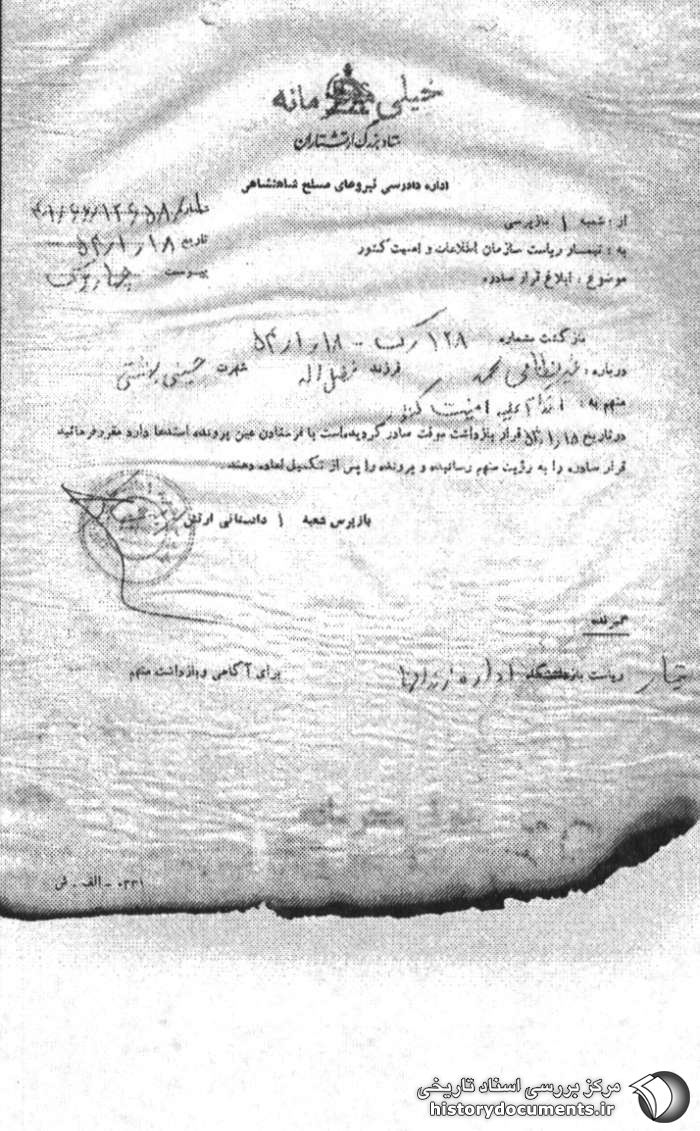 خیلی محرمانه
ستاد بزرگ ارتشتاران
اداره دادرسی نیروهای مسلح شاهنشاهی
از : شعبه ۱ بازپرسی
به : تیمسار ریاست سازمان اطلاعات و امنیت کشور
موضوع : ابلاغ قرار صادره
شماره
تاریخ ۵۴/۱/۱۸
پیوست چهار برگ
بازگشت بشماره ۱۲۸ - ۵۴/۱/۱۸
درباره : محمد فرزند فضل اله شهرت حسینی بهشتی
متهم به : اقدام علیه امنیت کشور
در تاریخ ۵۴/۱/۱۸ قرار بازداشت موقت صادر گردیده است با فرستادن عین پرونده استدعا دارد مقرر فرمائید
قرار صادره را به رؤیت متهم رسانیده و پرونده را پس از تکمیل اعاده دهند
بازپرس شعبه ۱ دادستانی ارتش
گیرنده
تیمسار ریاست اداره زندانها برای آگاهی و بازداشت متهم
۰۳۳۱ - الف - ش
مرکز بررسی اسناد تاریخی
historydocuments.ir